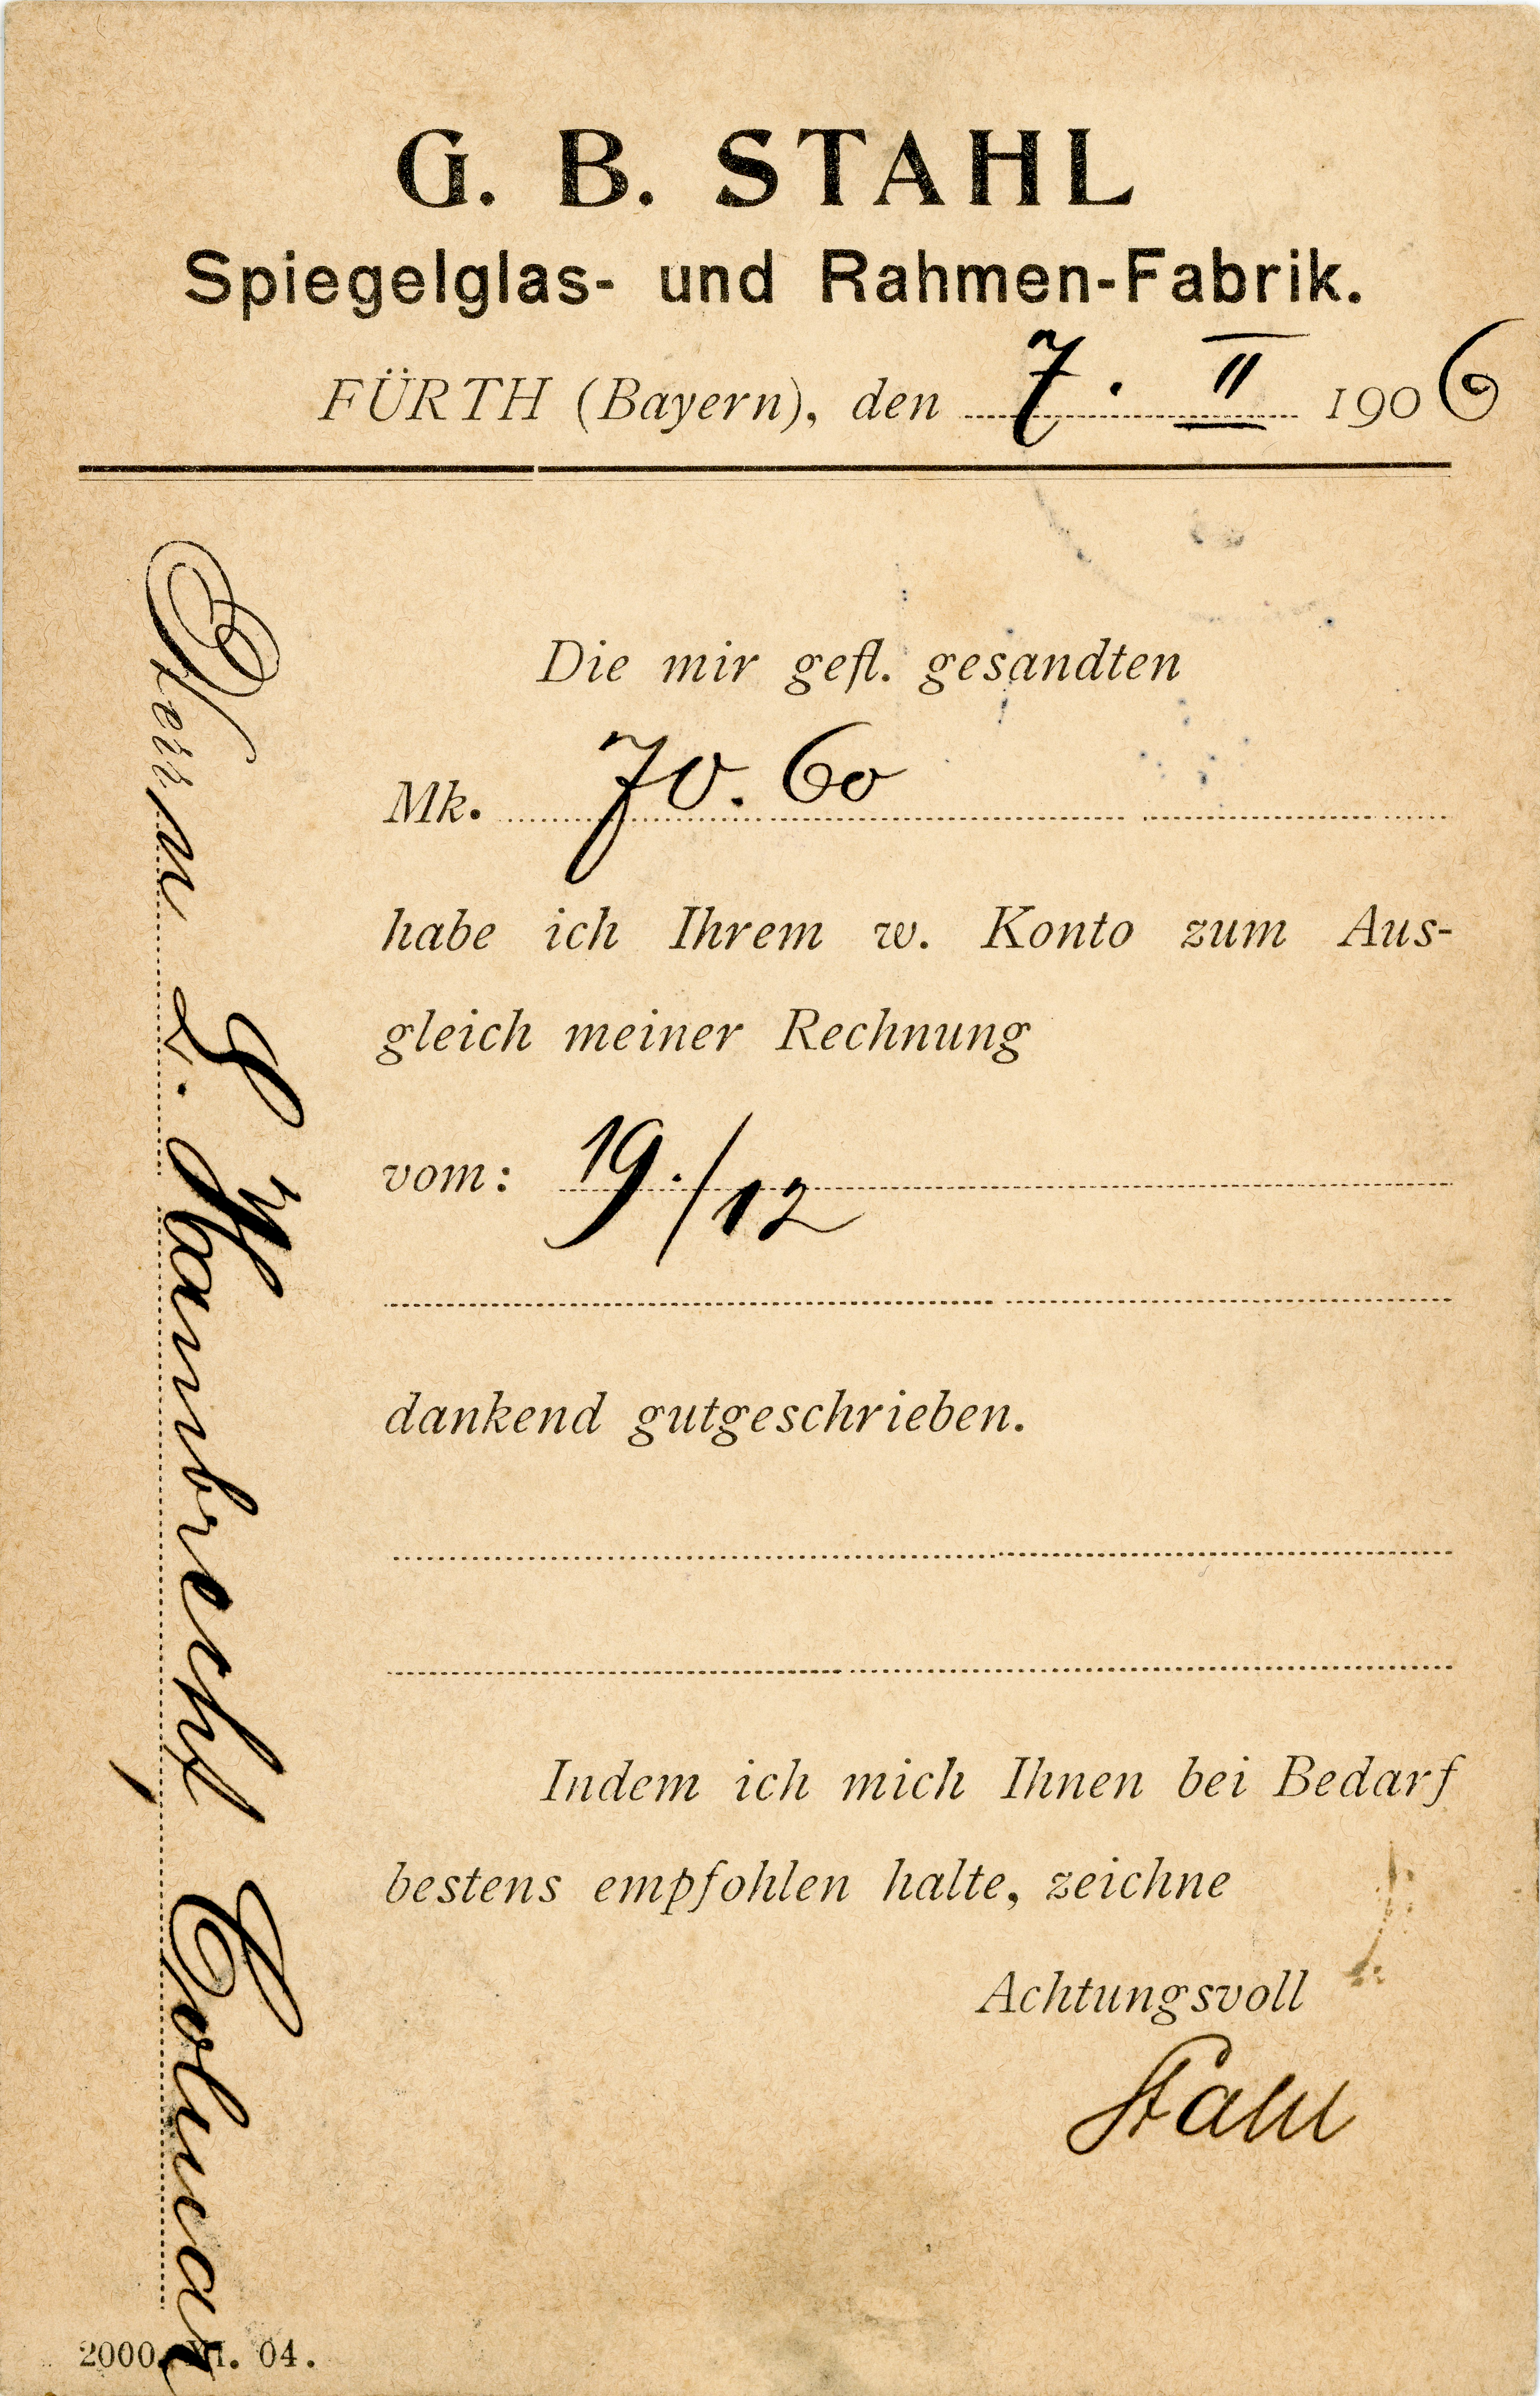 G. B. STAHL
Spiegelglas- und Rahmen-Fabrik.
FÜRTH (Bayern), den 7. II 1906
Die mir gefl. gesandten
Mk. 70.60
habe ich Ihrem w. Konto zum Aus-
gleich meiner Rechnung
vom: 19./12
dankend gutgeschrieben.
Indem ich mich Ihnen bei Bedarf
bestens empfohlen halte, zeichne
Achtungsvoll
Stahl
Herrn L. Hambrecht, Colmar
2000. XI. 04.